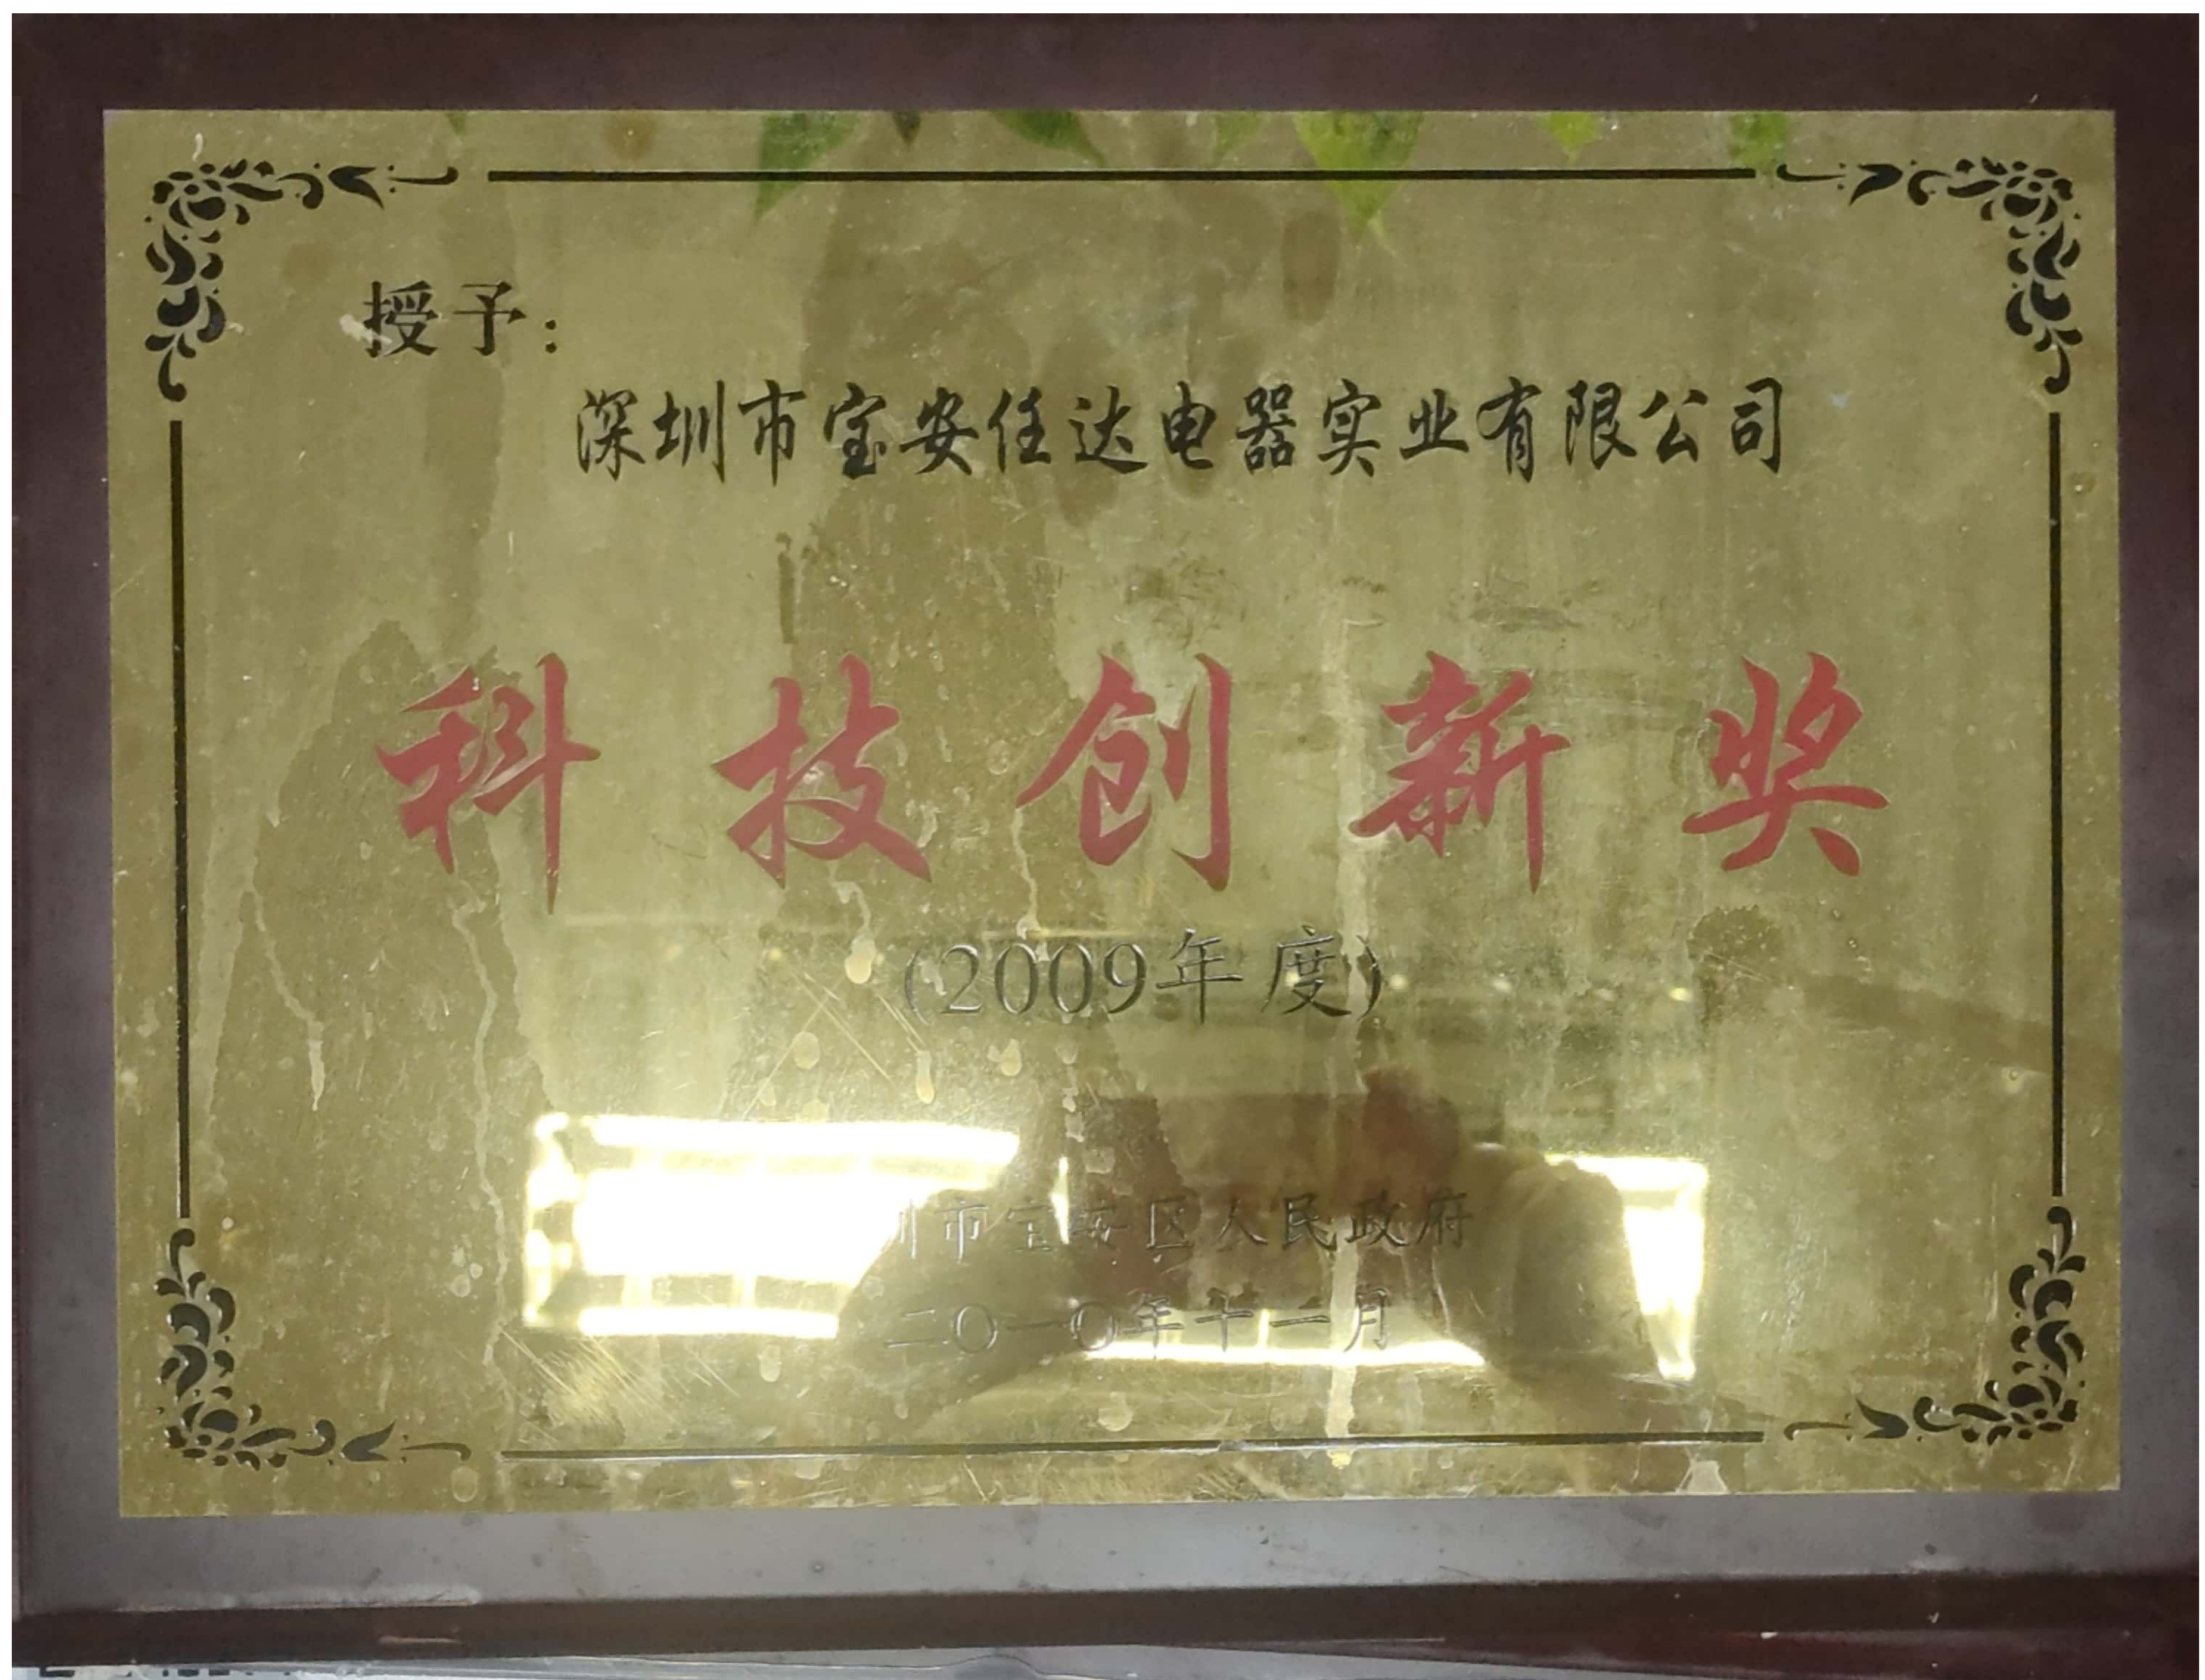 授予：
深圳市宝安任达电器实业有限公司
科技创新奖
(2009年度)
圳市宝安区人民政府
二〇一〇年十一月